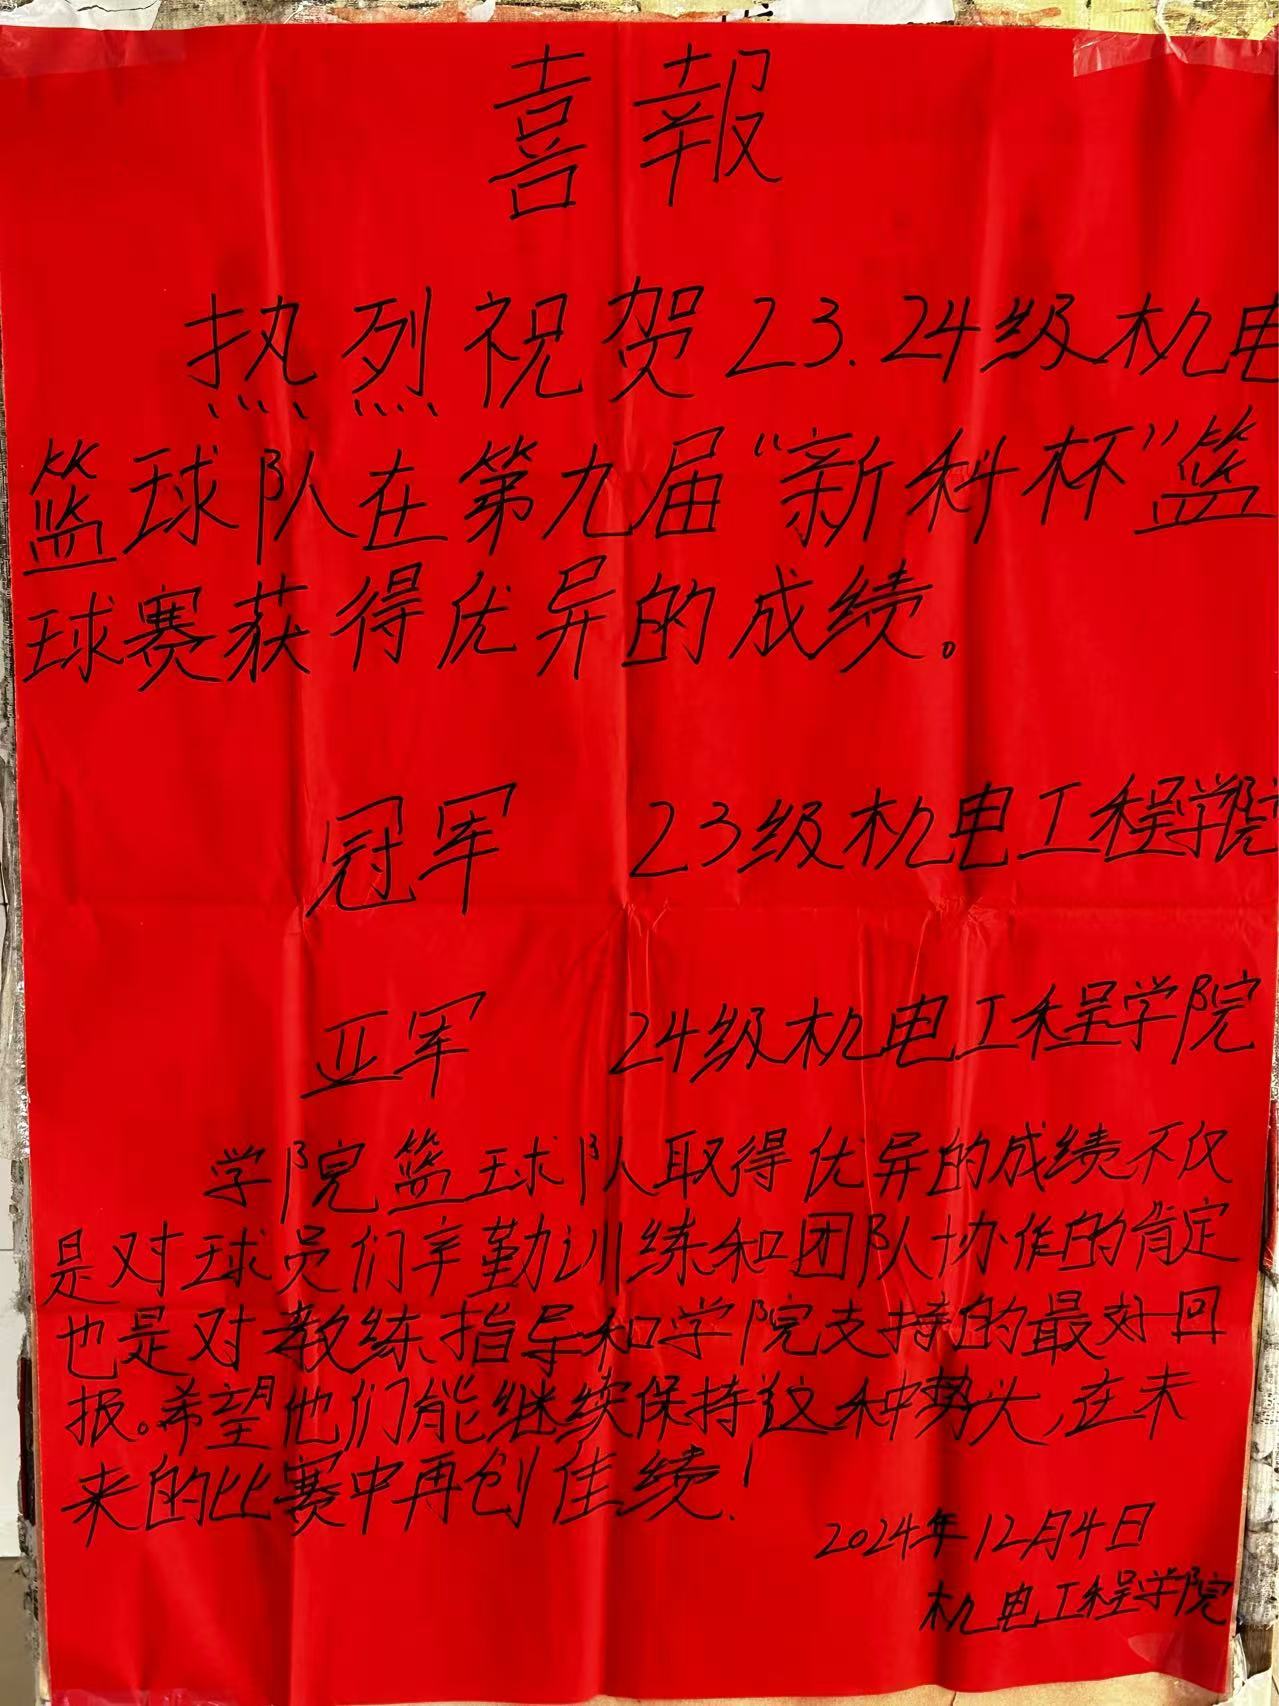 喜報
热烈祝贺23.24级机电
篮球队在第九届“新科杯”篮
球赛获得优异的成绩。
冠军 23级机电工程学院
亚军 24级机电工程学院
学院篮球队取得优异的成绩不仅
是对球员们辛勤训练和团队协作的肯定
也是对教练指导和学院支持的最好回
报。希望他们能继续保持这种势头,在未
来的比赛中再创佳绩!
2024年12月4日
机电工程学院